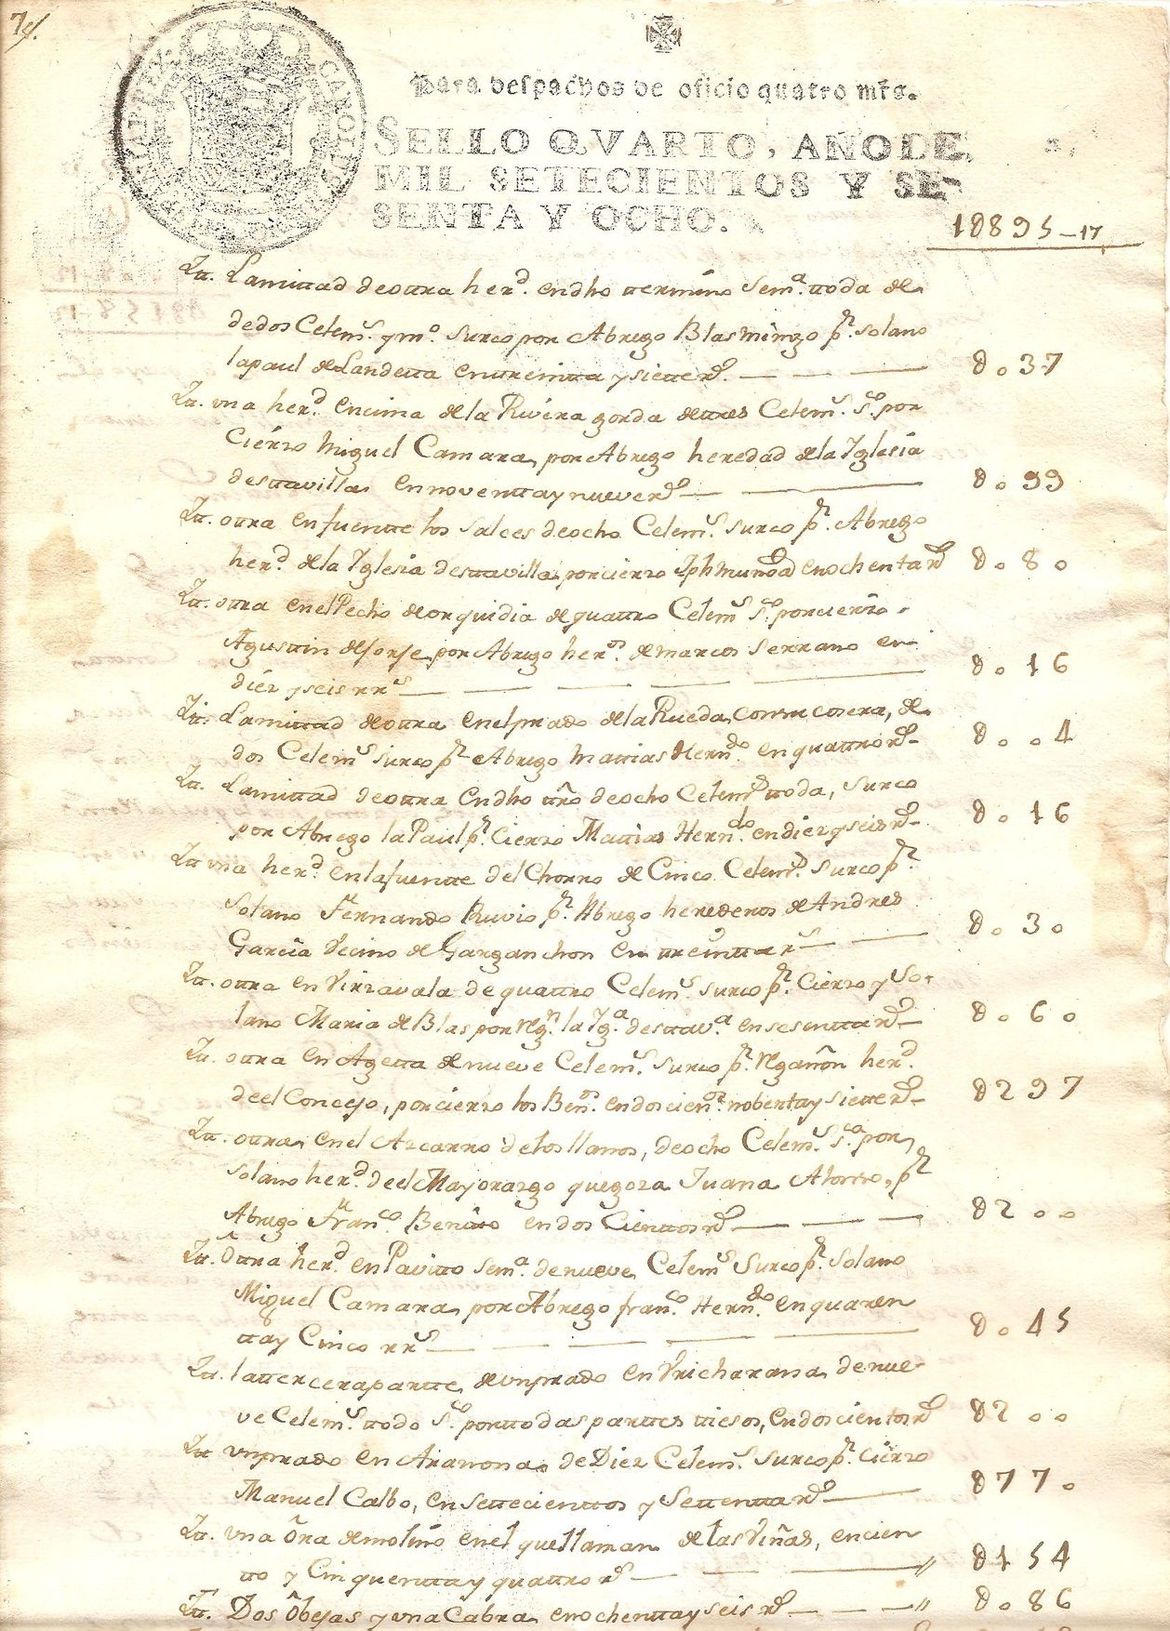 79.
CAROLUS
Para despachos de oficio quatro mrs.
SELLO QVARTO, AÑO DE
MIL SETECIENTOS Y SE-
SENTA Y OCHO.
10895-17
Ytt. Lamittad deottra herd. endho ttermino semª. ttoda de
dedos Celems. y mº. surco por Abrego Blas mingo pr. solano
lapaul de Landetta enttreintta y siette rs. 8037
Ytt. vna herd. encima de la Rivera gorda de ttres Celems. so. por
Cierzo Miguel Camara, por Abrego heredad de la Yglesia
desttavilla ennoventtaynueve rs. 8099
Ytt. ottra en fuentte los salces deocho Celems. surco pr. Abrego
herd. de la Yglesia desttavilla, por cierzo Jph muñoz en ochentta rs 8080
Ytt. ottra enel Pecho de orquidia de quattro Celems so. por cierzo
Agusttin de Jorje, por Abrego hers. de marcos serrano en
diez y seis rrs 8016
Ytt. Lamittad deottra enelprado de la Rueda, de
dos Celems surco pr Abrego mattias Herndo. en quattro rs 8004
Ytt. Lamittad deottra endho ttño deocho Celems ttoda, surco
por Abrego la Paul pr. Cierzo Mattias Herndo. en diez y seis rs 8016
Ytt vna herd. enlafuentte del Chorro de Cinco Celems. surco pr.
solano Fernando Ruvio pr. Abrego herederos de Andres
Garcia Vecino de Garganchon en ttreintta rs 8030
Ytt. ottra en Virzavala de quattro Celems. surco pr. Cierzo y So-
lano Maria de Blas por Rgn. la Ygª. desttavª. en sesentta rs 8060
Ytt. ottra en Azetta de nueve Celems. surco pr. Regañon herd.
deel Concejo, porcierzo los Bens. endosciens. nobenttaysiette rs 8297
Ytt. ottra, en el Azcarro de los llanos, deocho Celems. so. por
solano herd. deel Mayorazgo quegoza Juana Alonso, pr
Abrego Franco Benitto en dos Cienttos rs 8200
Ytt. Ottra herd. en Pavitto semª. denueve Celems surco pr. solano
Miguel Camara, por Abrego franco. Herndo. en quaren
ttay Cinco rrs 8045
Ytt. lattercera partte, de vnprado en Vricharana, de nue-
ve Celems. ttodo so. porttodas parttes ttiesos, en doscienttos rs 8200
Ytt vnprado en Aranona de Diez Celems. surco pr. Cierzo
Manuel Calbo, en settecienttos y settentta rs 8770
Ytt. vna Ora de molino enel quellaman de las Viñas, en cien
tto y Cinquenttay quattro rs 8154
Ytt. Dos Obejas y vna Cabra, en ochenttay seis rs 8086